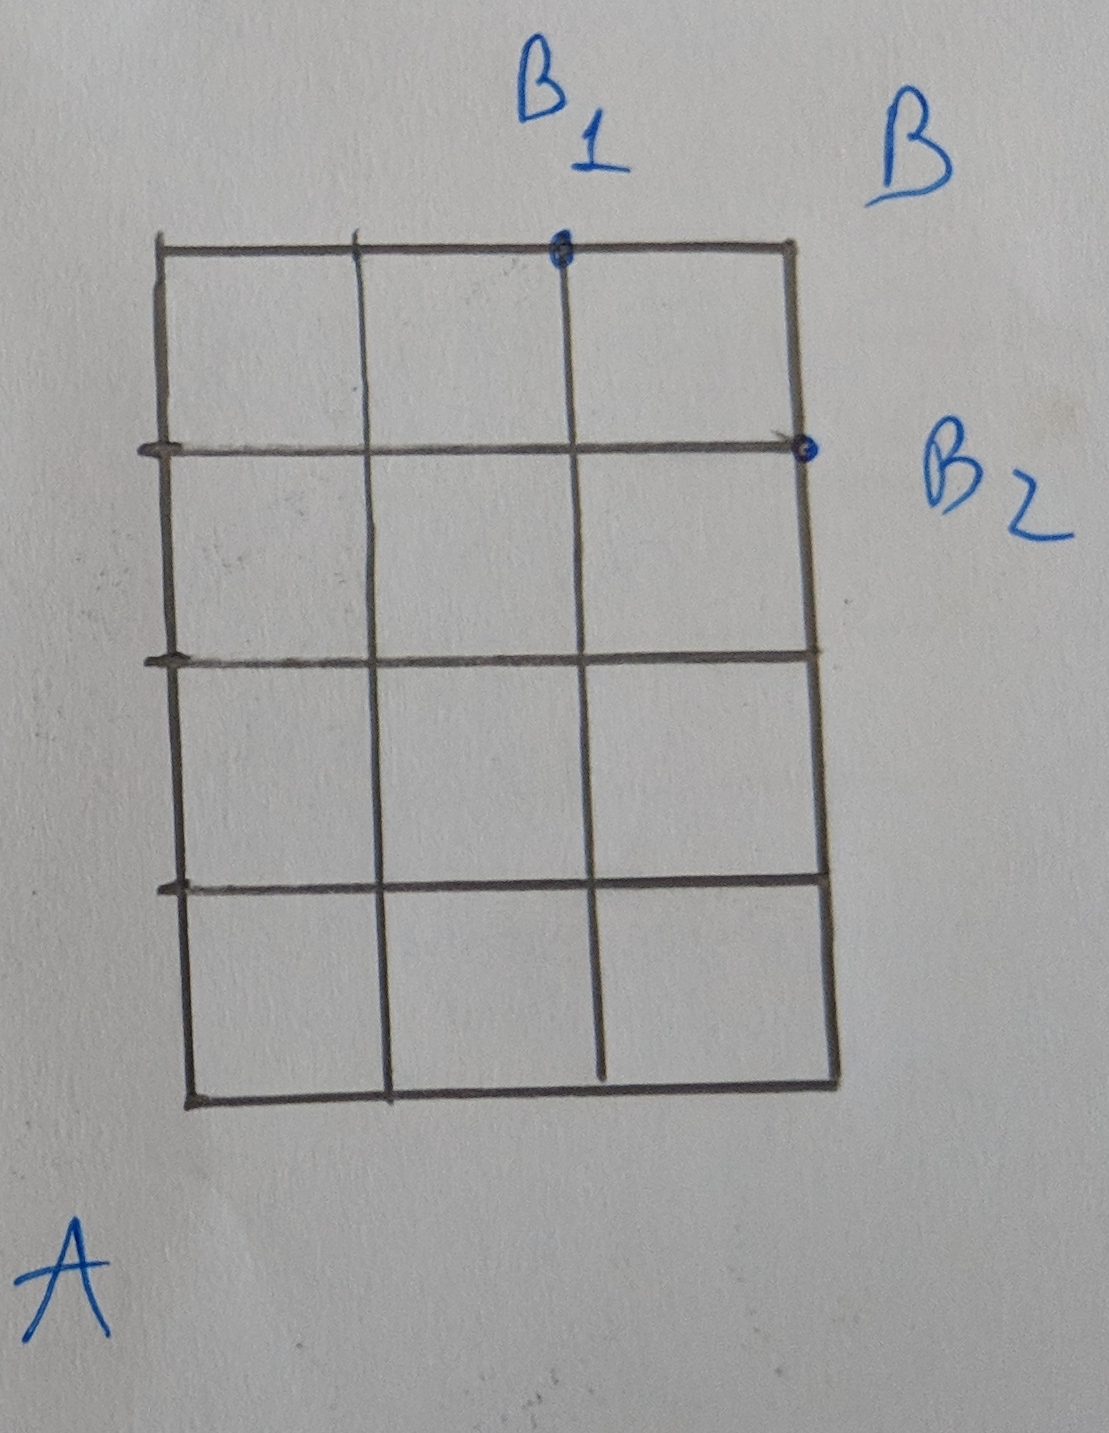 B1
B
B2
A